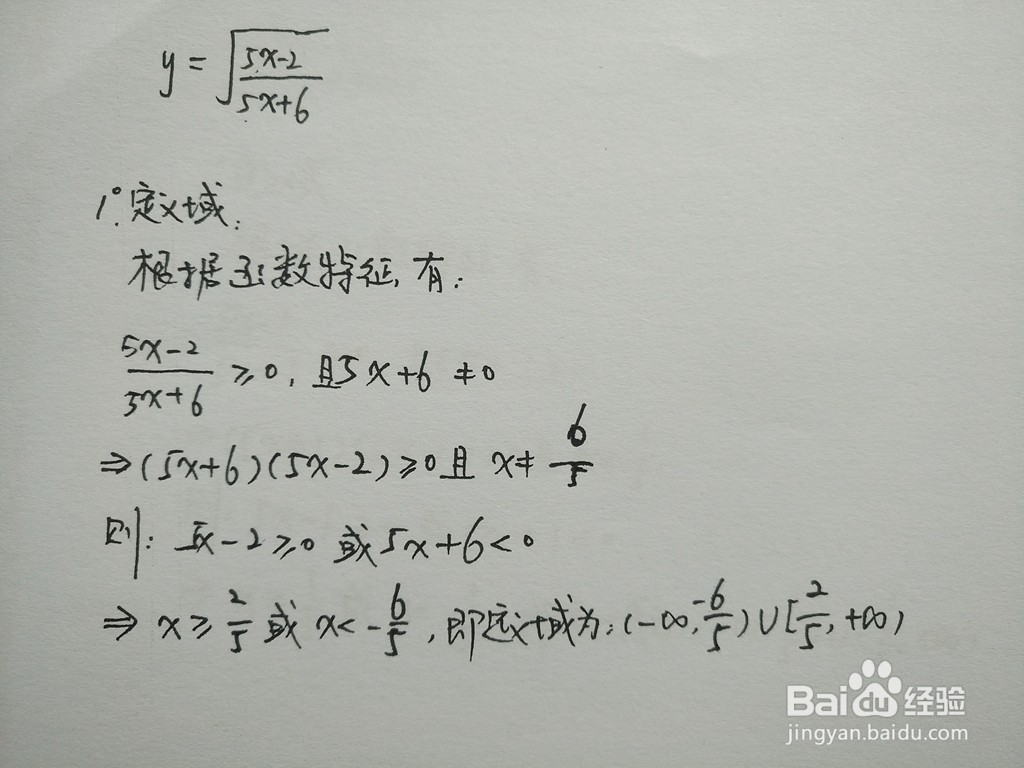 y = √((5x-2)/(5x+6))
1°. 定义域:
根据函数特征,有:
(5x-2)/(5x+6) ≥0, 且5x+6 ≠0
⇒(5x+6)(5x-2)≥0且 x≠ 6/5
则: 5x-2≥0 或5x+6<0
⇒ x≥ 2/5 或 x<-6/5, 即定义域为:(-∞,-6/5)∪[2/5,+∞)
Baidu经验
jingyan.baidu.com